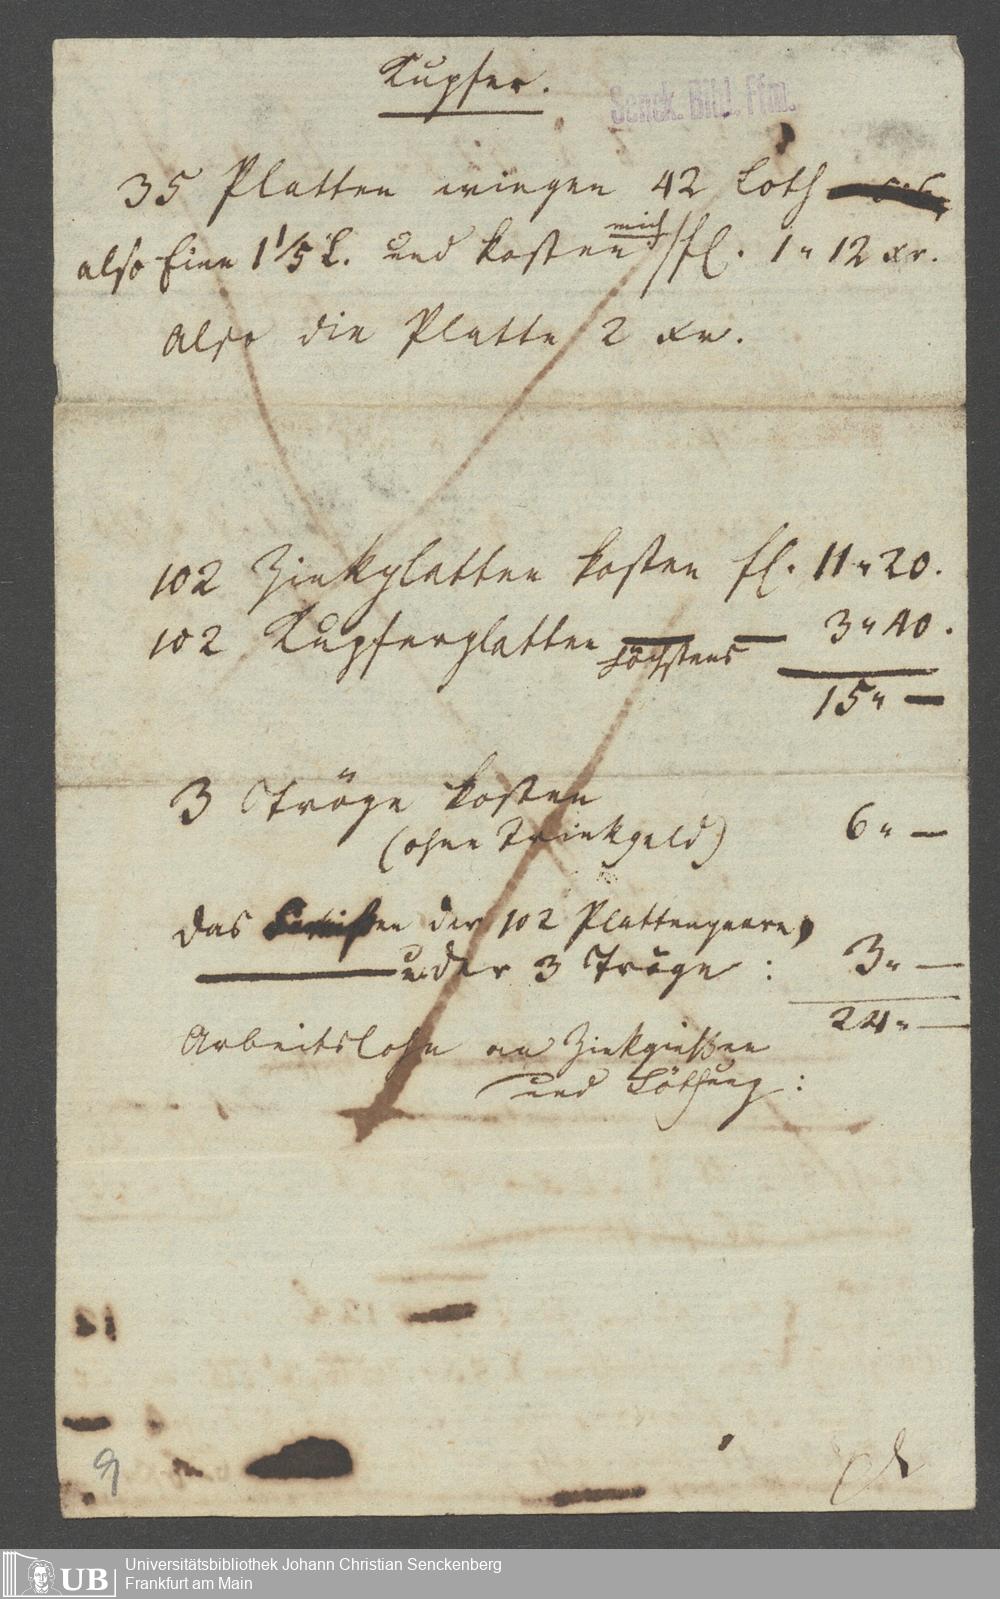 Kupfer.
Senck. Bibl. Ffm.
35 Platten wiegen 42 Loth
also Eine 1 1/5 L. und kosten mich fl. 1 „ 12 xr.
also die Platte 2 xr.
102 Zinkplatten kosten fl. 11 „ 20.
102 Kupferplatten höchstens — 3 „ 40.
15 „ —
3 Tröge kosten
(ohne Trinkgeld) 6 „ —
das der 102 Plattenpaare,
u. der 3 Tröge : 3 „ —
24 „ —
Arbeitslohn an Zinkgießen
und Löthung :
9
UB
Universitätsbibliothek Johann Christian Senckenberg
Frankfurt am Main